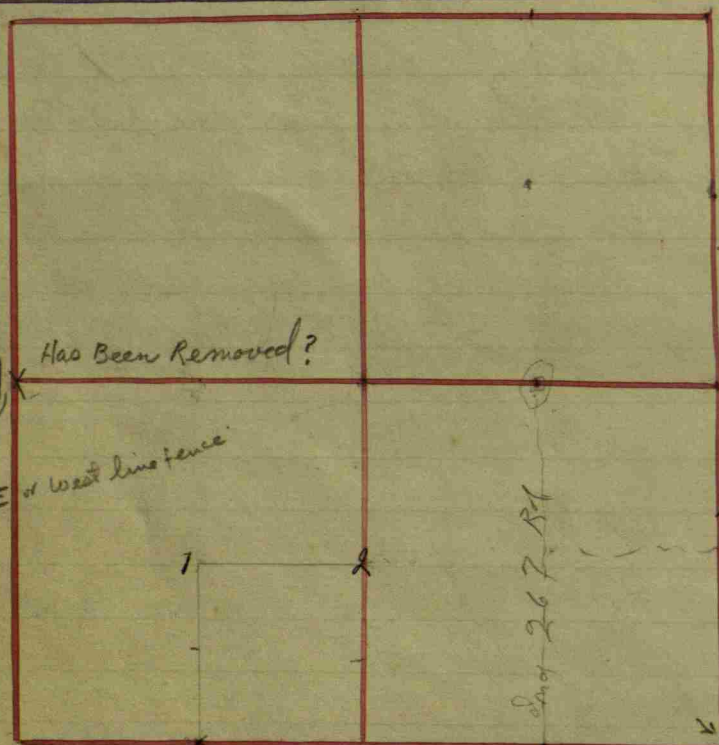 Has Been Removed?
E or West line fence
1 2
267